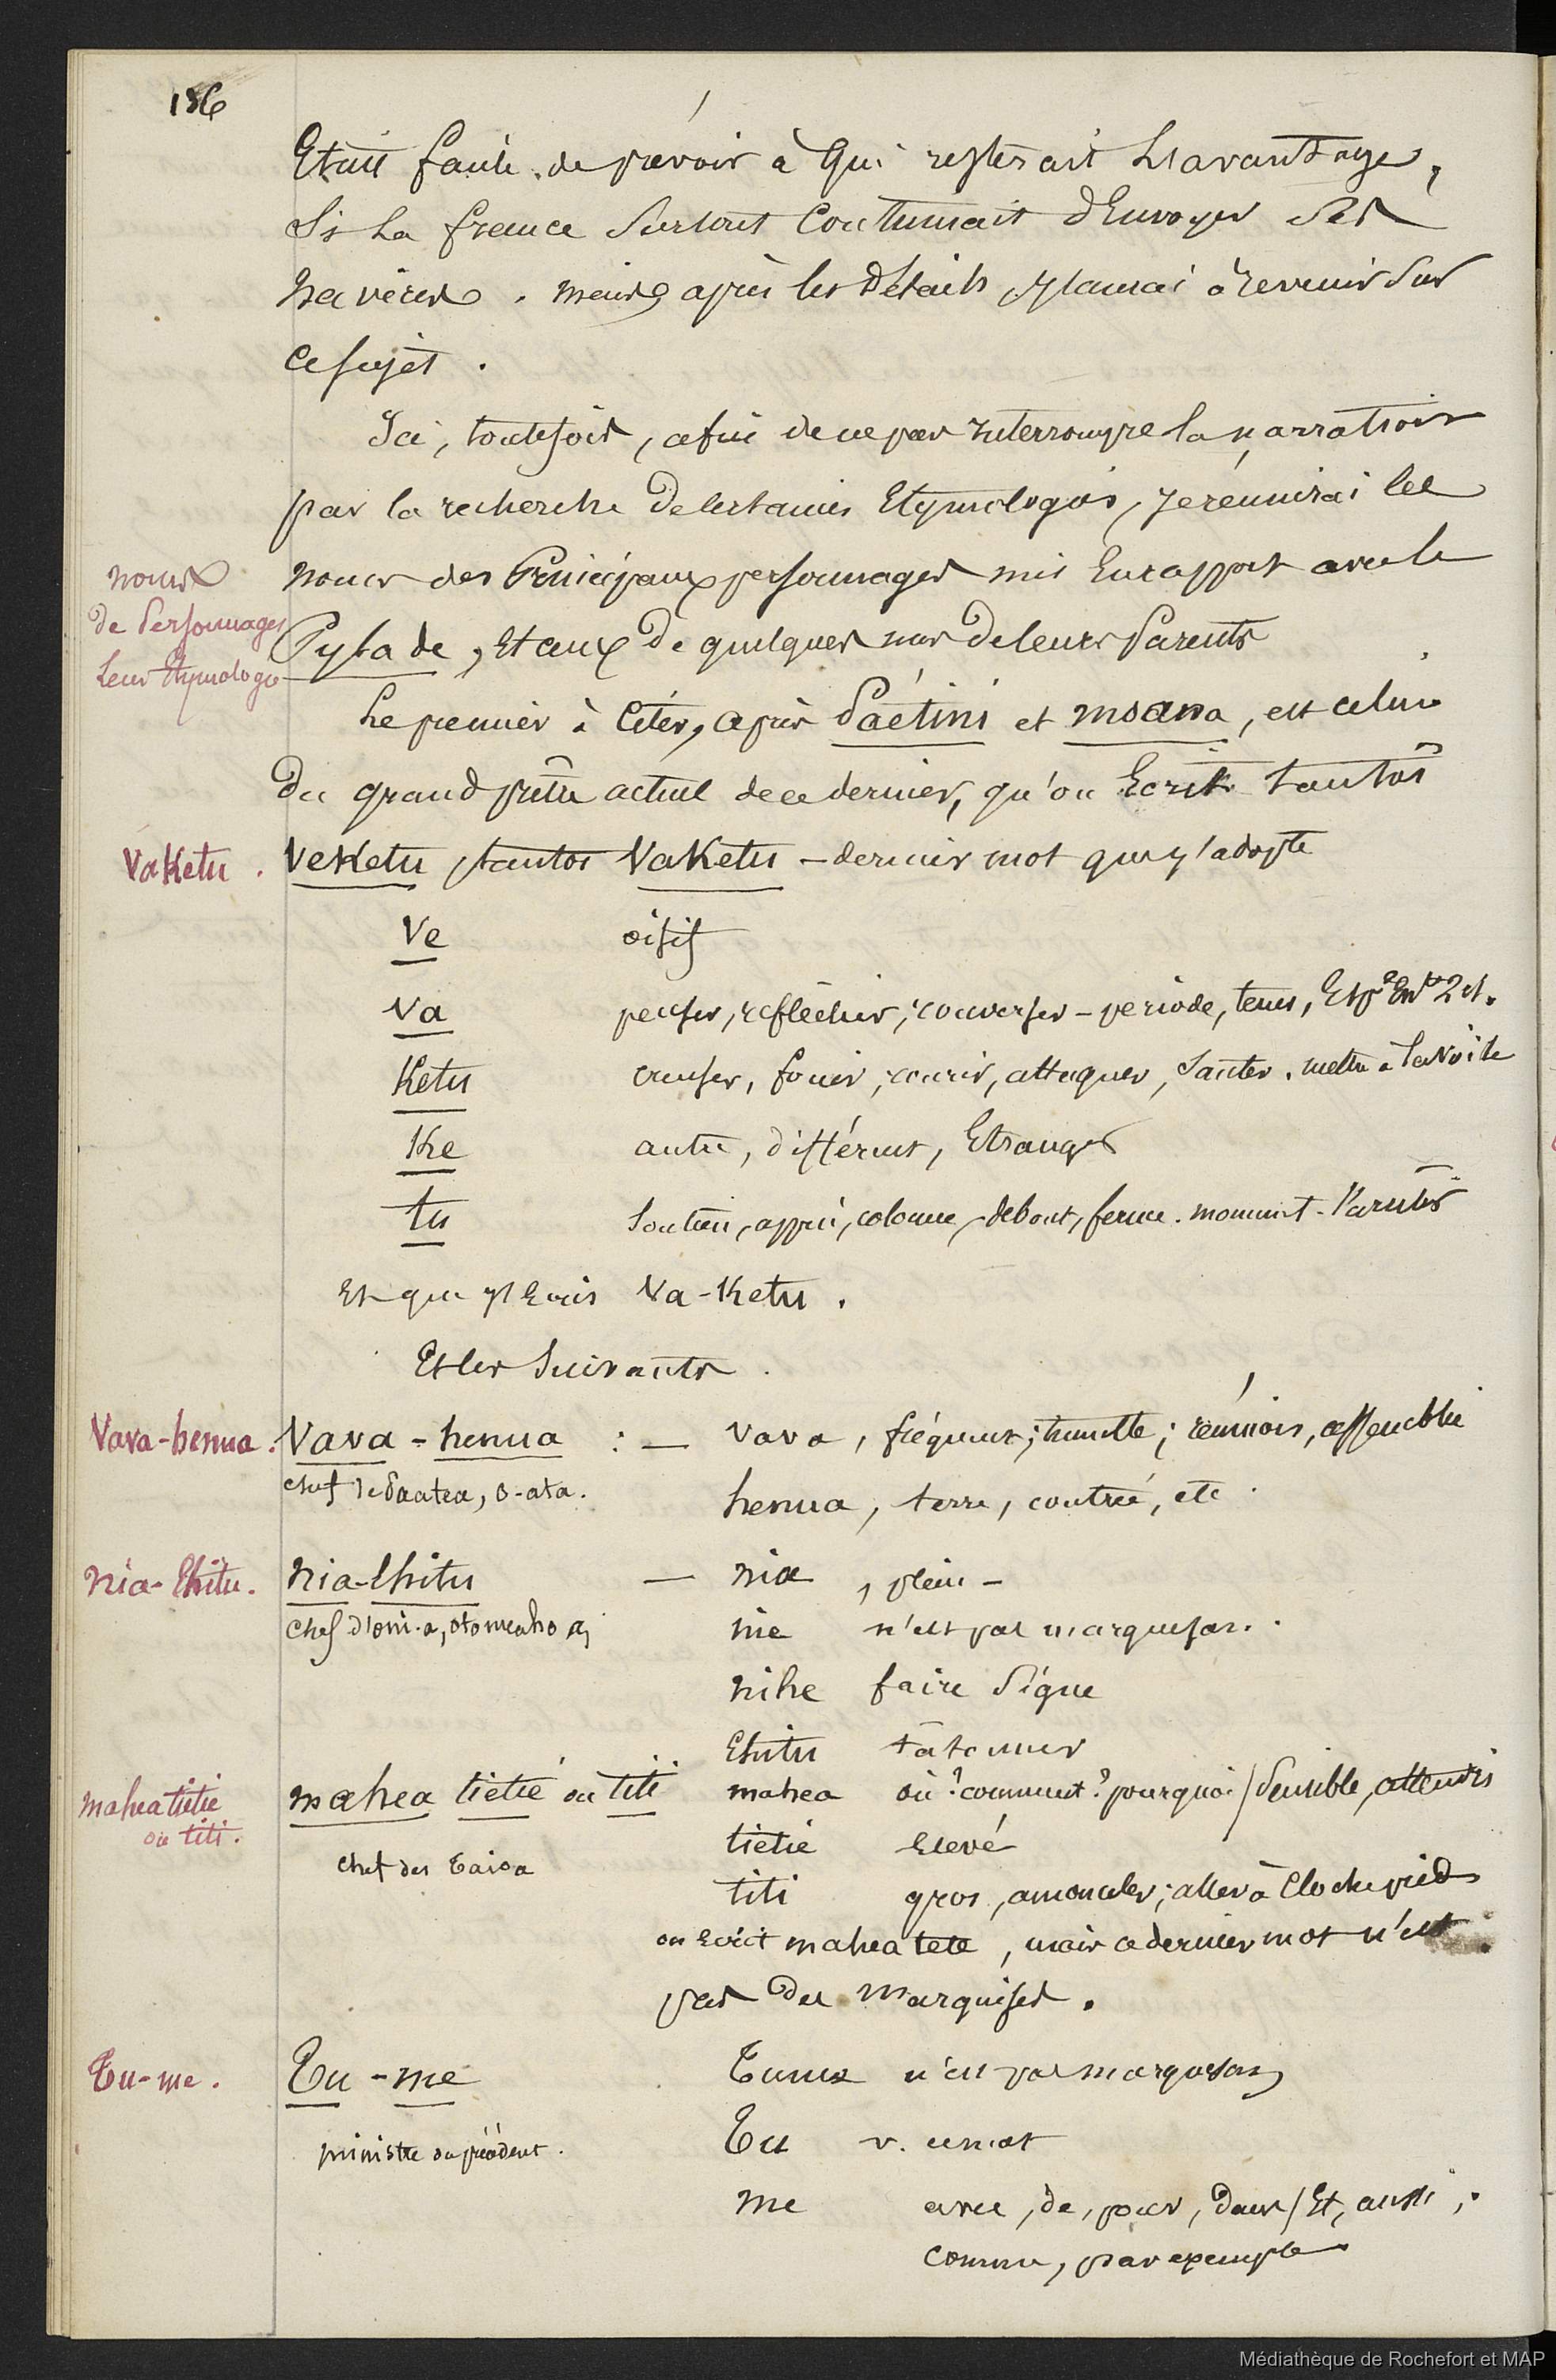 156
Etait facile de prévoir à qui resterait l'avantage,
Si la france surtout continuait d'Envoyer ses
navires. mais, après les détails, j'aurai à revenir sur
ce sujet.
Ici, toutefois, afin de ne pas interrompre la narration
par la recherche de certaines Etymologies, je réunirai les
noms
de Personnages
leur Etymologie
noms des Principaux personnages mis En rapport avec le
Pylade, et ceux de quelques uns de leurs Parents
Le premier à citer, après Paétini et moana, est celui
du grand père actuel de ce dernier, qu'on Ecrit tantôt
Vaketu.
Veketu, tantot Vaketu – dernier mot que j'adopte
Ve oisif
Va penser, réfléchir, converser – période, tems, Esp
Ketu creuser, fouir, courir, attaquer, sauter. mettre à la voile
Ke autre, différent, Etranger
tu soutien, appui, colonne, debout, ferme. monument.
Et que j'Ecris Va-Ketu.
Et les suivants.
Vava-henua.
Vava-henua : — vava, fréquent; tumulte; réunion, assemblée
chef de Paatea, o-ata.
henua, terre, contrée, etc.
nia-Ehitu.
nia-Ehitu — nia, plein –
chef d'oni-a, otomeaho
nie n'est pas marquesan.
nihe faire signe
Ehitu tâtonner
mahea tietie
ou titi.
mahea tietie ou titi mahea où? comment? pourquoi / sensible, attendri
tietie Elevé
chef des taioa
titi gros, amonceler; aller à Cloche pied
on Ecrit mahea tete, mais ce dernier mot n'est
pas des marquises.
Tu-me.
Tu-me Tume n'est pas marquesan
ministre du précédent.
Tu v. ce mot
me avec, de, pour, dans / Et, aussi;
comme, par exemple
Médiathèque de Rochefort et MAP